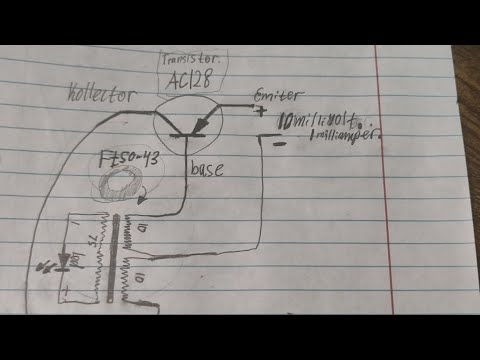 Transistor.
AC128
Kollector
Emiter
+
10 millivolt.
1 milliamper.
-
FT50-43
base
10
75
LED
10